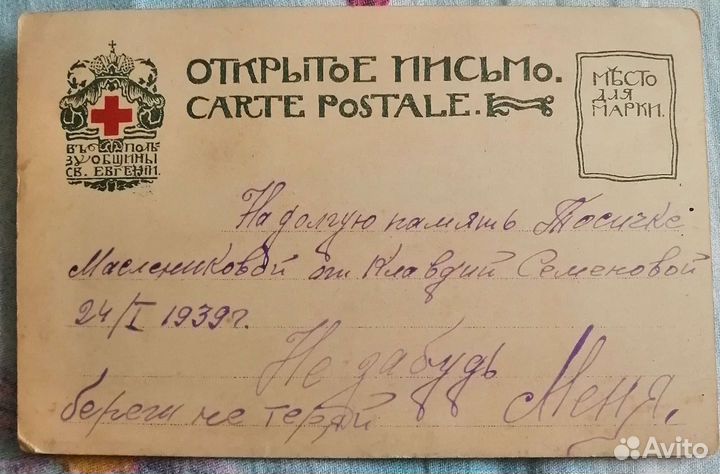 ОТКРЫТОЕ ПИСЬМО.
CARTE POSTALE.
МѢСТО
ДЛЯ
МАРКИ.
ВЪ ПОЛЬ-
ЗУ ОБЩИНЫ
СВ. ЕВГЕНІИ.
На долгую память Тосичке
Маслениковой от Клавдий Семеновой
24/I 1939г.
Не забудь
береги не теряй Меня.
Avito